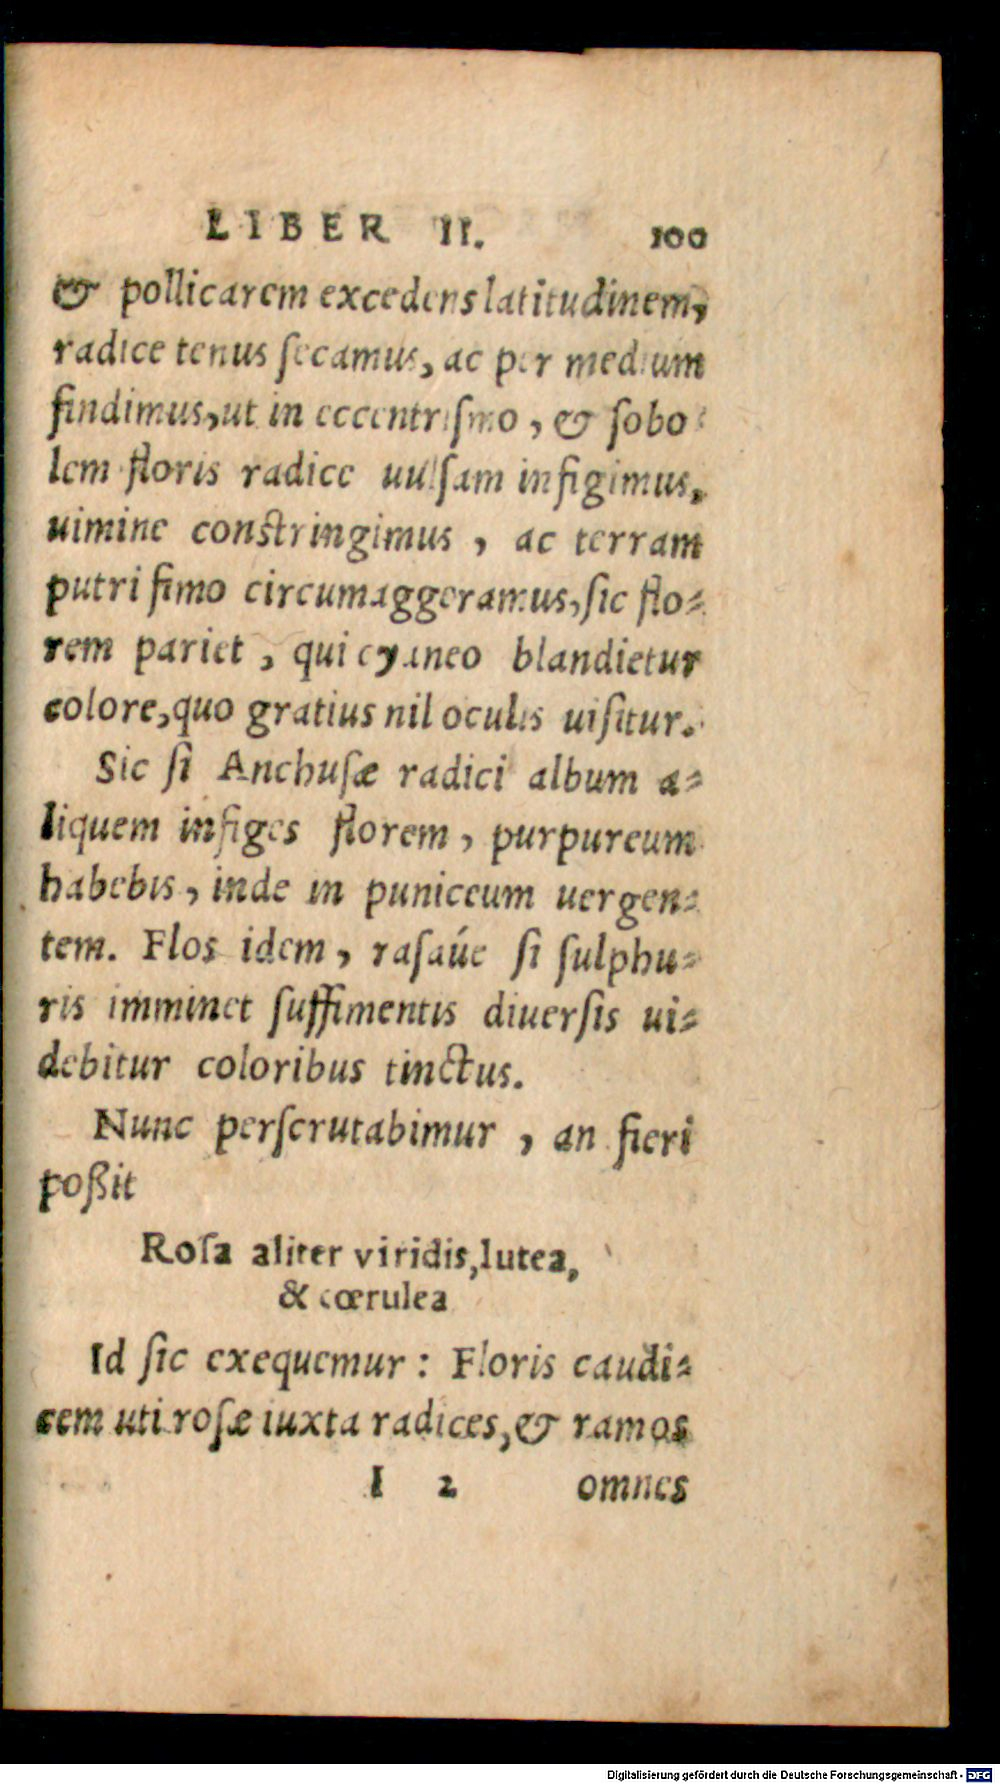 LIBER II. 100
& pollicarem excedens latitudinem,
radice tenus ſecamus, ac per medium
findimus, ut in eccentriſmo, & ſobo⸗
lem floris radice uulſam infigimus,
uimine conſtringimus, ac terram
putri fimo circumaggeramus, ſic flo⸗
rem pariet, qui cyaneo blandietur
colore, quo gratius nil oculis uiſitur.
Sic ſi Anchuſæ radici album a⸗
liquem infiges florem, purpureum
habebis, inde in puniceum uergen⸗
tem. Flos idem, raſaúe ſi ſulphu⸗
ris imminet ſuffimentis diuerſis ui⸗
debitur coloribus tinctus.
Nunc perſcrutabimur, an fieri
poßit
Roſa aliter viridis, lutea,
& cœrulea
Id ſic exequemur: Floris caudi⸗
cem uti roſæ iuxta radices, & ramos
I 2 omnes
Digitalisierung gefördert durch die Deutsche Forschungsgemeinschaft - DFG